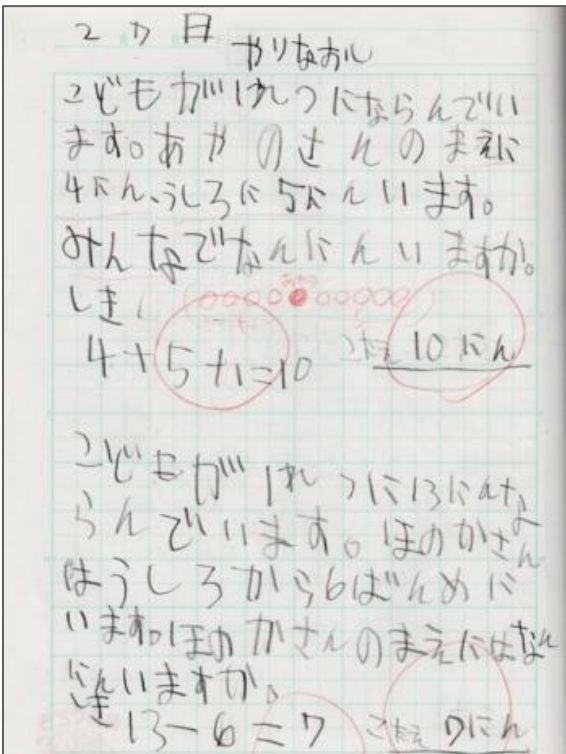 2か目
やりなおし
こどもが1れつにならんでい
ます。あやのさんのまえに
4にん、うしろに5にんいます。
みんなでなんにんいますか。
しき
あやの
4+5+1=10
こたえ 10にん
こどもが1れつに13にんな
らんでいます。ほのかさん
はうしろから6ばんめに
います。ほのかさんのまえにはなん
にんいますか。
しき
13-6=7
こたえ 7にん